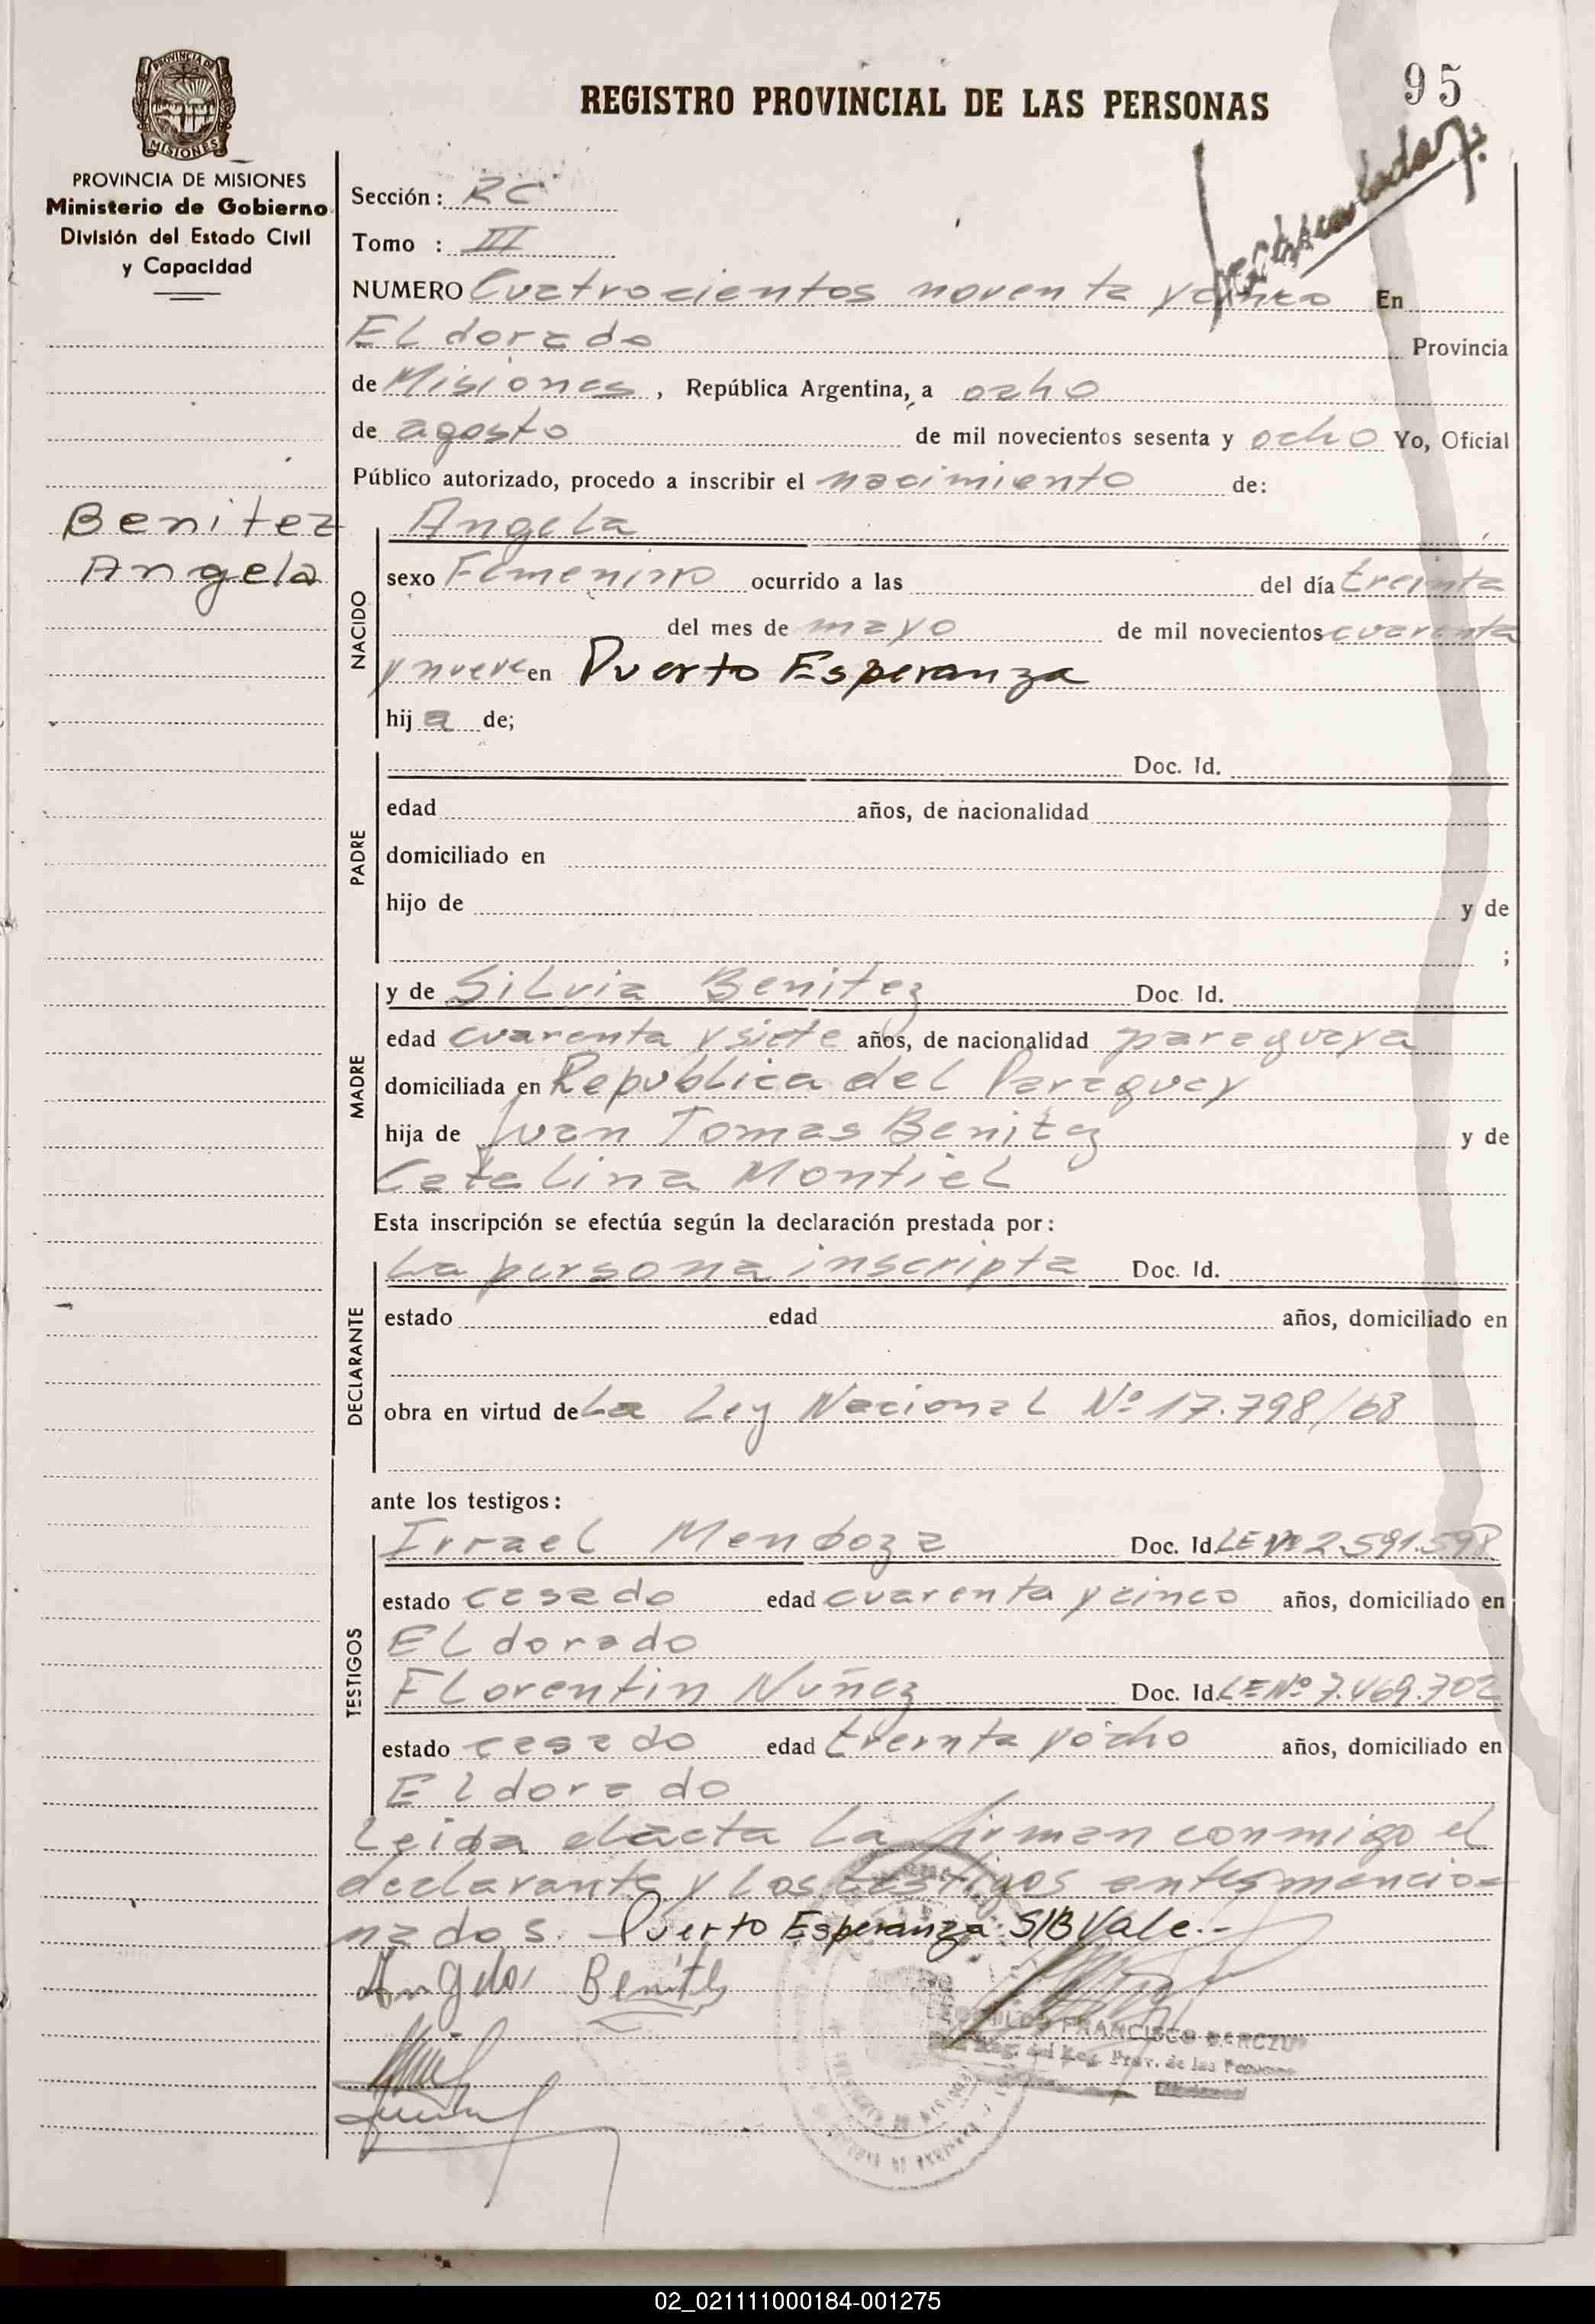 95
REGISTRO PROVINCIAL DE LAS PERSONAS
PROVINCIA DE MISIONES
PROVINCIA DE MISIONES
Ministerio de Gobierno
División del Estado Civil
y Capacidad
Sección: RC
Tomo : III
NUMERO Cuatrocientos noventa y cinco En
ELdorado Provincia
de Misiones, República Argentina, a ocho
de agosto de mil novecientos sesenta y ocho Yo, Oficial
Público autorizado, procedo a inscribir el nacimiento de:
Benitez
Angela
NACIDO
Angela
sexo Femenino ocurrido a las del día treinta
del mes de mayo de mil novecientos cuarenta
y nueve en Puerto Esperanza
hij a de;
PADRE
Doc. Id.
edad años, de nacionalidad
domiciliado en
hijo de y de
;
MADRE
y de SiLvia Benitez Doc. Id.
edad cuarenta y siete años, de nacionalidad paraguaya
domiciliada en RepubLica deL Paraguay
hija de Juan Tomas Benitez y de
CataLina MontieL
Esta inscripción se efectúa según la declaración prestada por:
DECLARANTE
La persona inscripta Doc. Id.
estado edad años, domiciliado en
obra en virtud de La Ley NacionaL Nº 17.798/68
ante los testigos:
TESTIGOS
IrraeL Mendoza Doc. Id. LE Nº 2.591.598
estado casado edad cuarenta y cinco años, domiciliado en
ELdorado
FLorentin Nuñez Doc. Id. LE Nº 7.469.702
estado casado edad treinta y ocho años, domiciliado en
Eldorado
Leida el acta La firman conmigo el
declarante y Los testigos antes mencio=
nados. Puerto Esperanza: S/B Vale.-
Angela Benites
FRANCISCO
Reg. Prov. de las Personas
02_021111000184-001275